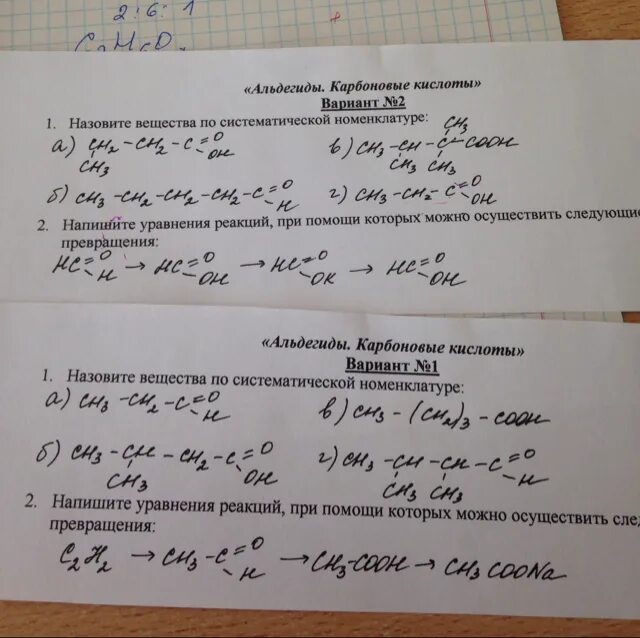 2:6:1
C2H6O
«Альдегиды. Карбоновые кислоты»
Вариант №2
1. Назовите вещества по систематической номенклатуре:
CH3
а) CH2 - CH2 - C = O в) CH3 - CH - C - COOH
- OH
CH3 CH3 CH3
б) CH3 - CH2 - CH2 - CH2 - C = O г) CH3 - CH2 - C = O
- H - OH
2. Напишите уравнения реакций, при помощи которых можно осуществить следующие
превращения:
HC = O → HC = O → HC = O → HC = O
- H - OH - OK - OH
«Альдегиды. Карбоновые кислоты»
Вариант №1
1. Назовите вещества по систематической номенклатуре:
а) CH3 - CH2 - C = O в) CH3 - (CH2)3 - COOH
- H
б) CH3 - CH - CH2 - C = O г) CH3 - CH - CH - C = O
CH3 - OH CH3 CH3 - H
2. Напишите уравнения реакций, при помощи которых можно осуществить сле
превращения:
C2H2 → CH3 - C = O → CH3 - COOH → CH3COONa
- H